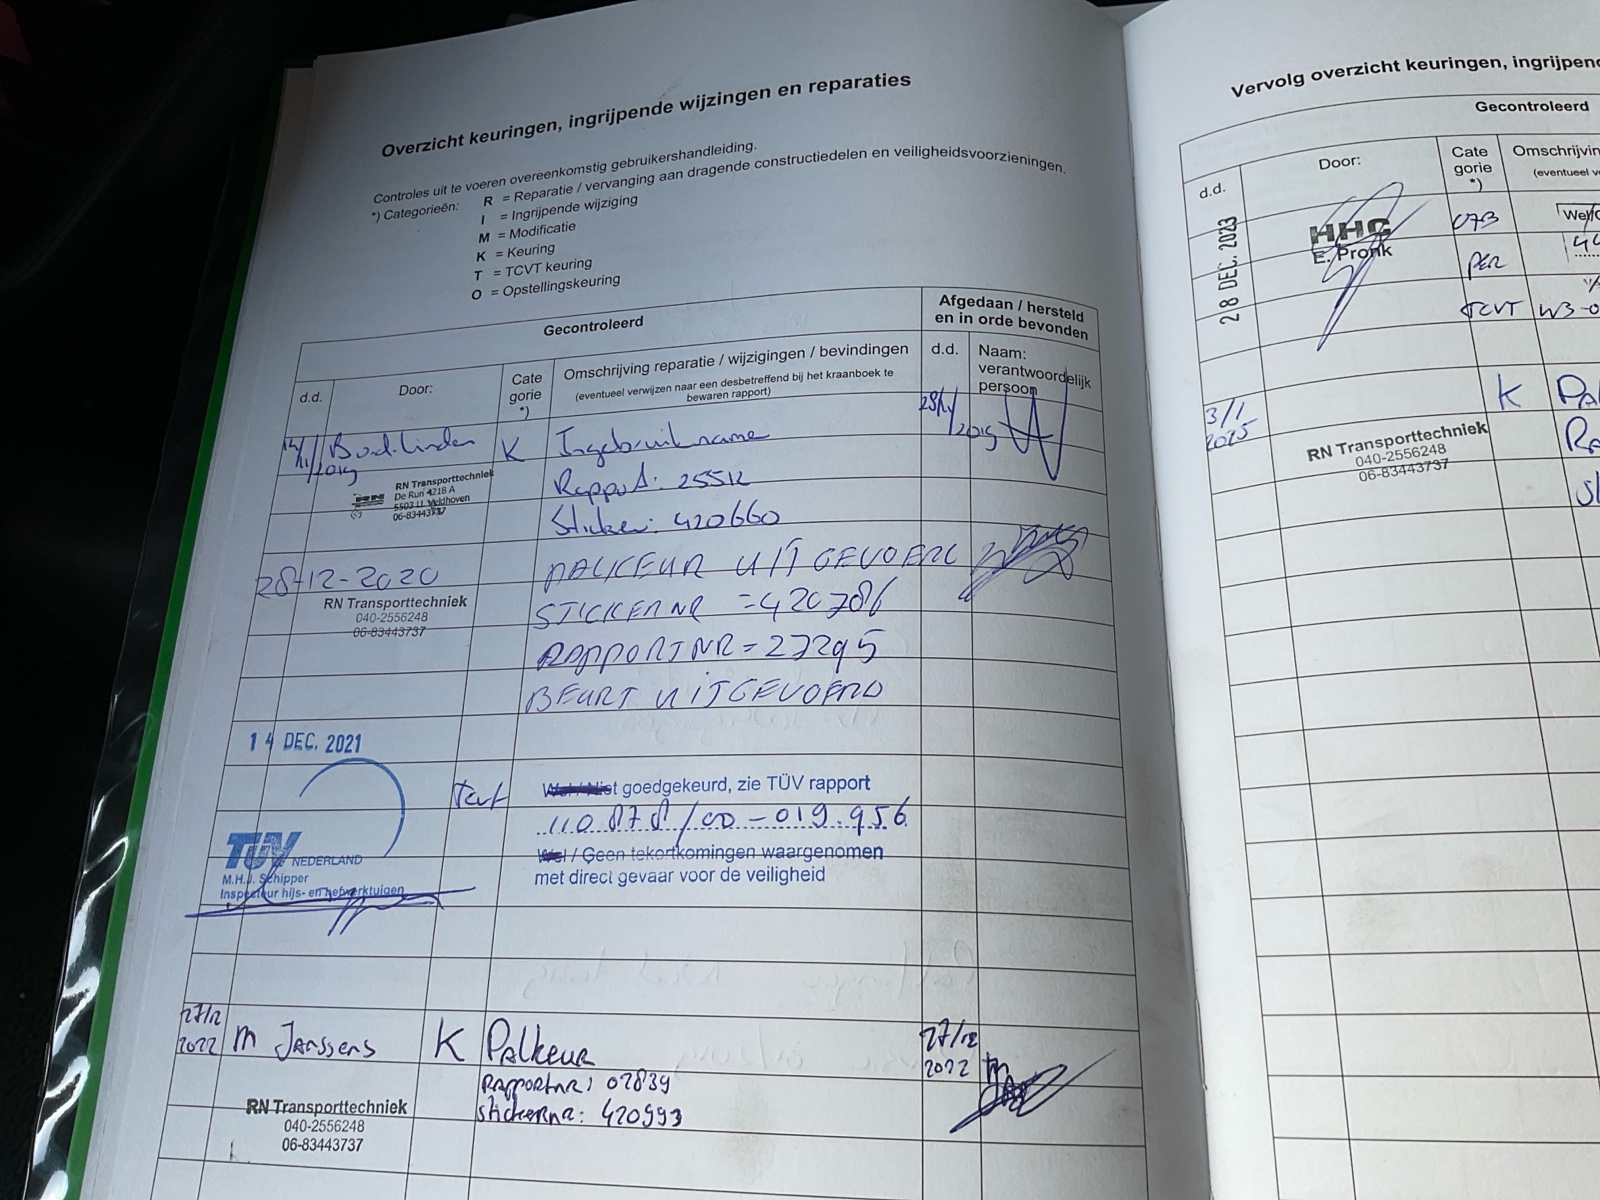 Overzicht keuringen, ingrijpende wijzingen en reparaties
Controles uit te voeren overeenkomstig gebruikershandleiding.
*) Categorieën:
R = Reparatie / vervanging aan dragende constructiedelen en veiligheidsvoorzieningen.
I = Ingrijpende wijziging
M = Modificatie
K = Keuring
T = TCVT keuring
O = Opstellingskeuring
Gecontroleerd
Afgedaan / hersteld
en in orde bevonden
d.d.
Door:
Cate
gorie
*)
Omschrijving reparatie / wijzigingen / bevindingen
(eventueel verwijzen naar een desbetreffend bij het kraanboek te
bewaren rapport)
d.d.
Naam:
verantwoordelijk
persoon
2019
K
Ingebruikname
2019
RN Transporttechniek
De Run 4218 A
5503 LL Veldhoven
06-83443737
RN
Rapport: 25512
Sticker: 420660
28-12-2020
PALKEUR UITGEVOERD
RN Transporttechniek
040-2556248
06-83443737
STICKERNR = 420786
RAPPORTNR = 27295
BEURT UITGEVOERD
14 DEC. 2021
Tcvt
Wel / Niet goedgekeurd, zie TÜV rapport
110.878/00-019.956
TÜV NEDERLAND
M.H.J. Schipper
Inspecteur hijs- en hefwerktuigen
Wel / Geen tekortkomingen waargenomen
met direct gevaar voor de veiligheid
27/12
2022
M Janssens
K
Palkeur
27/12
2022
Rapportnr: 02839
Stickernr: 420993
RN Transporttechniek
040-2556248
06-83443737
Vervolg overzicht keuringen, ingrijpen
Gecontroleerd
d.d.
Door:
Cate
gorie
*)
Omschrijvin
(eventueel v
28 DEC. 2023
HHC
E. Pronk
073
Wel/
PER
44
TCVT
W3-0
3/1
2025
K
RN Transporttechniek
040-2556248
06-83443737